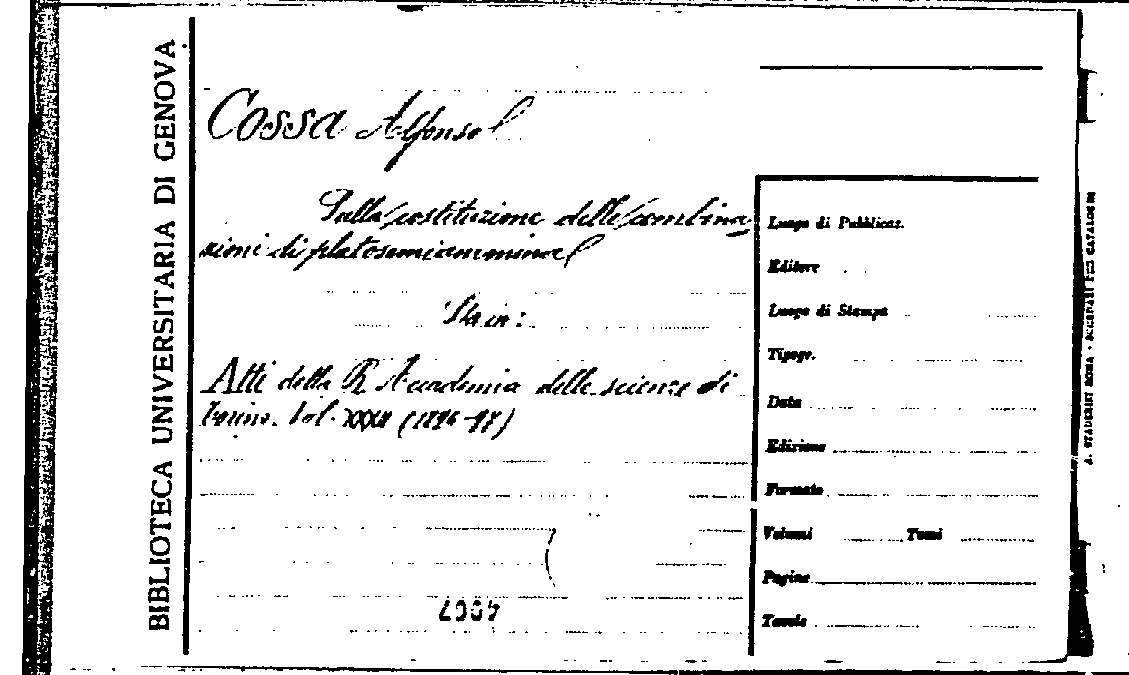 BIBLIOTECA UNIVERSITARIA DI GENOVA
Cossa Alfonso
Sulla costituzione delle combina-
zioni di platosemiammina
Sta in:
Atti della R. Accademia delle scienze di
Torino. Vol. XXXII (1896-97)
Luogo di Pubblicaz.
Editore
Luogo di Stampa
Tipogr.
Data
Edizione
Formato
Volumi Tomi
Pagine
Tavole
A. STADERINI ROMA - ACCESSORI PER CATALOGHI